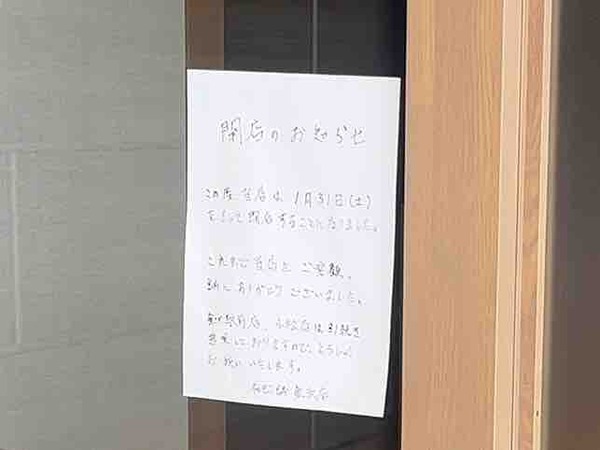 閉店のお知らせ
この度 当店は 1月31日(土)
をもって閉店することになりました。
これまで当店をご愛顧、
誠にありがとうございました。
駅前店、小松店は引続き
営業しておりますので、よろしく
お願いいたします。